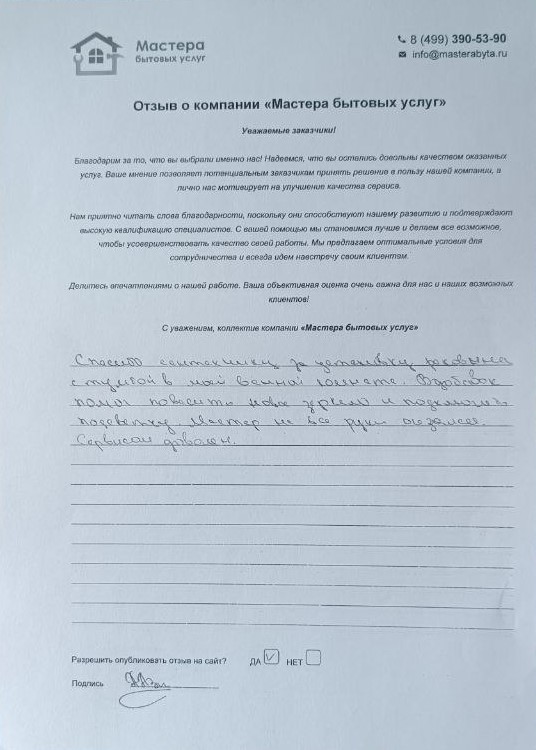 Мастера
бытовых услуг
8 (499) 390-53-90
info@masterabyta.ru
Отзыв о компании «Мастера бытовых услуг»
Уважаемые заказчики!
Благодарим за то, что вы выбрали именно нас! Надеемся, что вы остались довольны качеством оказанных
услуг. Ваше мнение позволяет потенциальным заказчикам принять решение в пользу нашей компании, а
лично нас мотивирует на улучшение качества сервиса.
Нам приятно читать слова благодарности, поскольку они способствуют нашему развитию и подтверждают
высокую квалификацию специалистов. С вашей помощью мы становимся лучше и делаем все возможное,
чтобы усовершенствовать качество своей работы. Мы предлагаем оптимальные условия для
сотрудничества и всегда идем навстречу своим клиентам.
Делитесь впечатлениями о нашей работе. Ваша объективная оценка очень важна для нас и наших возможных
клиентов!
С уважением, коллектив компании «Мастера бытовых услуг»
Спасибо сантехнику за установку раковины
с тумбой в моей ванной комнате. Вдобавок
помог повесить новое зеркало и подключить
подсветку. Мастер на все руки оказался.
Сервисом доволен.
Разрешить опубликовать отзыв на сайт? ДА НЕТ
Подпись